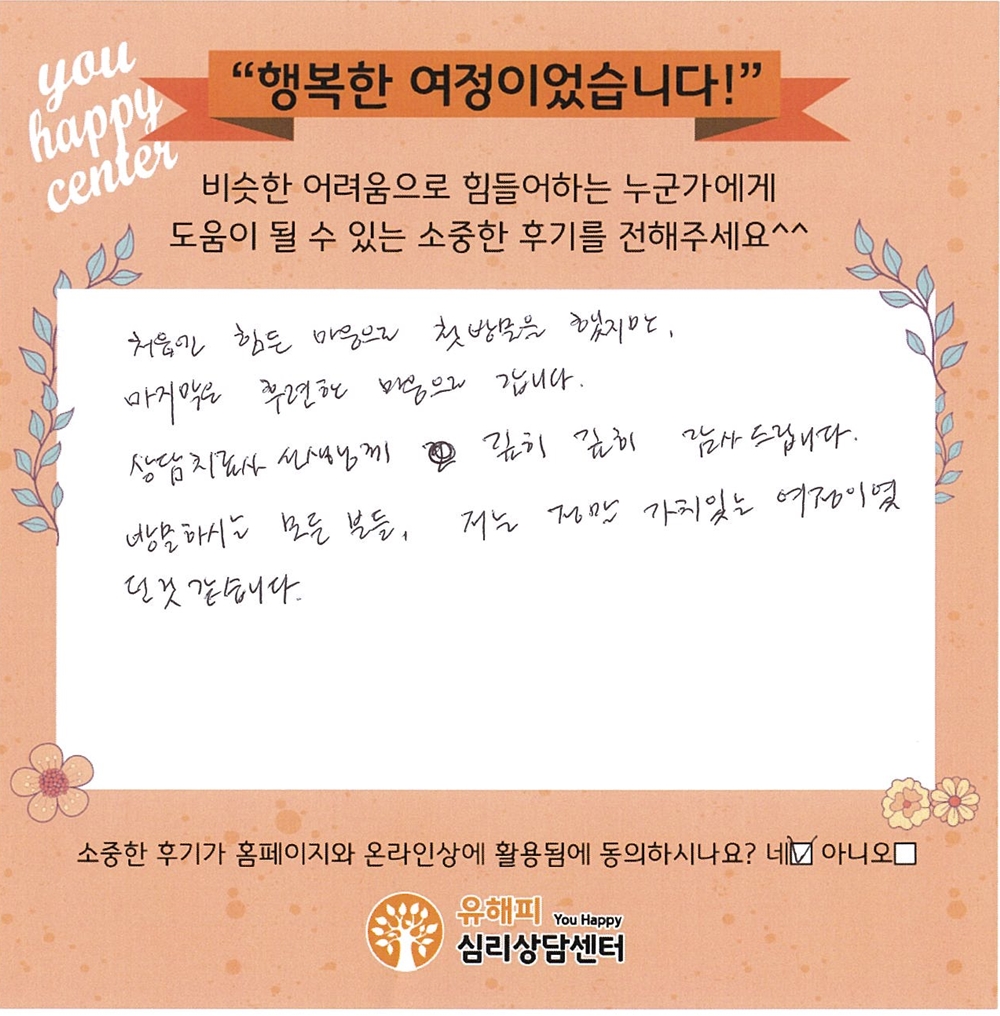 you
happy
center
“행복한 여정이었습니다!”
비슷한 어려움으로 힘들어하는 누군가에게
도움이 될 수 있는 소중한 후기를 전해주세요^^
처음엔 힘든 마음으로 첫 방문을 했지만,
마지막은 후련한 마음으로 갑니다.
상담치료사 선생님께 깊히 깊히 감사드립니다.
방문하시는 모든 분들, 저는 정말 가치있는 여정이였
던것 같습니다.
소중한 후기가 홈페이지와 온라인상에 활용됨에 동의하시나요? 네☑ 아니오☐
유해피 You Happy
심리상담센터